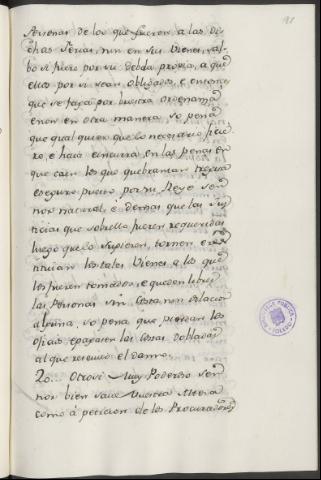 91
Personas de los que fueren a las di
chas Ferias, nin en sus Vienes, sal
bo si fuere por su debda propia, a que
ellos por si sean obligados, e entonces
que se faga por buestra ordenanza
e non en otra manera, so pena
que qual quiera que lo necesario ficie
re, e haia e incurra en las penas en
que caen los que quebrantan tregua
e seguro puesto por su Rey e Señ
nor natural, é demas que las Jus
ticias que sobrello fueren requeridas
luego que lo supieren, tornen e res
tituian los tales Vienes a los que
les fueren tomados, e queden libres
las Personas sin costa nin dilacion
alguna, so pena que pierdan los
oficios, e paguen las costas dobladas
al que reciviò el danno.
20... Otrosi Muy Poderoso Señ
nor bien save Vuestra Alteza
como á peticion de los Procuradores
BIBLIOTECA PUBLICA
TOLEDO